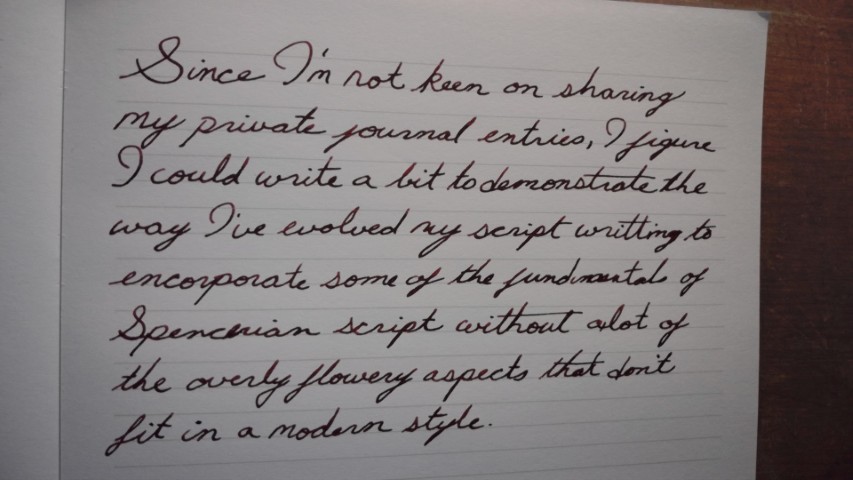 Since I'm not keen on sharing
my private journal entries, I figure
I could write a bit to demonstrate the
way I've evolved my script writting to
encorporate some of the fundimentals of
Spencerian script without alot of
the overly flowery aspects that don't
fit in a modern style.